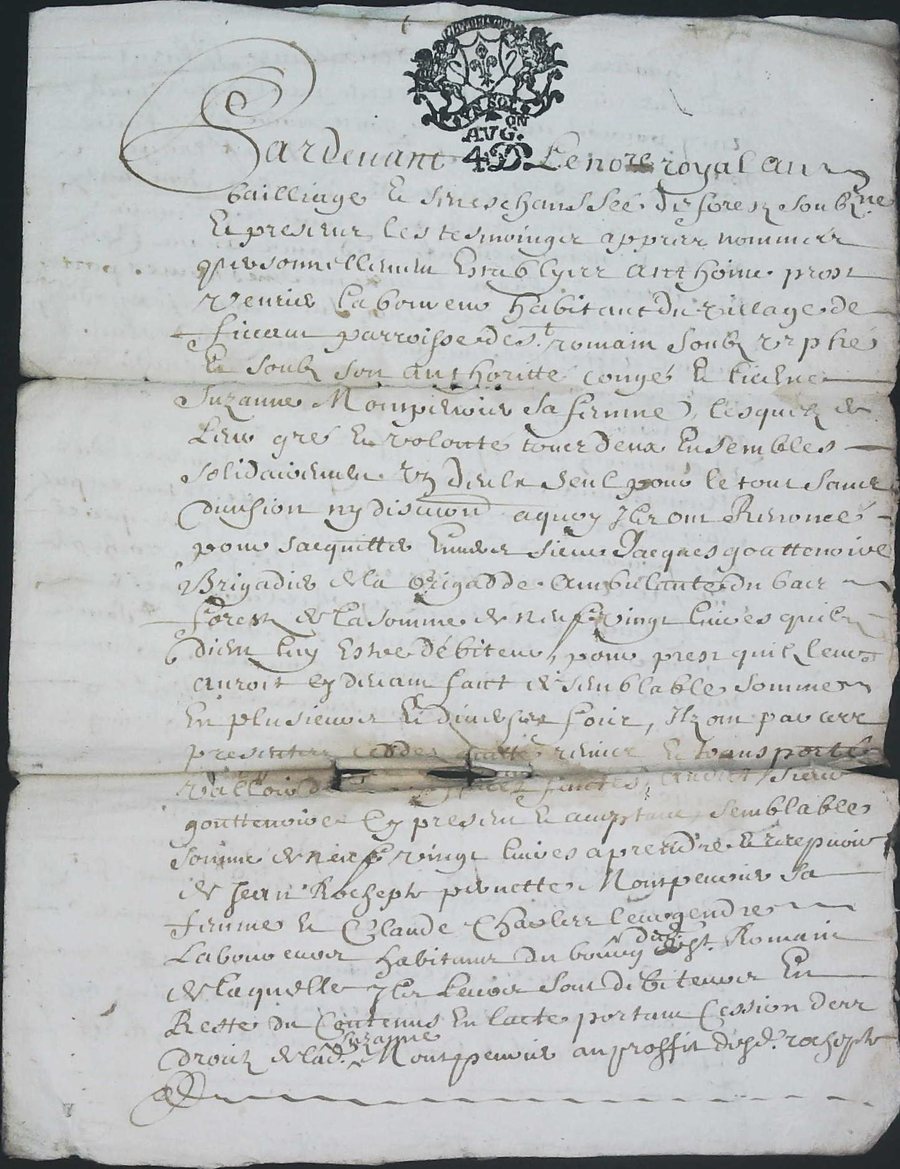 LYON
AVG.
4 D
Pardevant Le no.re royal au
bailliage et seneschaussée de forez soub.ne
Et presens les tesmoings appres nommez
personnellement Establyes anthoine
laboureur habitant du village de
parroisse de s.t romain soubz
Et soubz son authoritte congé et licence
Suzanne Monpeurier sa femme, lesquelz de
Leur gré et volonte tous deux Ensembles
solidairement Un d'eulx seul pour le tout sans
division ny discution a quoy Ilz ont Renoncé
pour sacquitter Envers sieur Jacques gouttenoire
Brigadier de la brigadde ambulante du bas
forez de la somme de neuf vingt livres quilz
dient luy Estre débiteur, pour prest quil leur
auroit cy devant faict de semblable somme
En plusieurs Et diverses fois, Ilz ont par ces
presentes ceddé quitté remis Et transporté
audict sieur
gouttenoire Cy present Et acceptant semblable
somme de neuf vingt livres a prendre Et recepvoir
de Jean Rochepte pernette Montpeurier sa
femme Et Claude Charles leur gendre
Laboureurs habitans du bourg dud. S.t Romain
de laquelle Ilz Leurs sont débiteurs En
Reste du Contenus En lacte portant Cession des
droictz de lad. Suzanne Montpeurier au proffit dud. rochepte